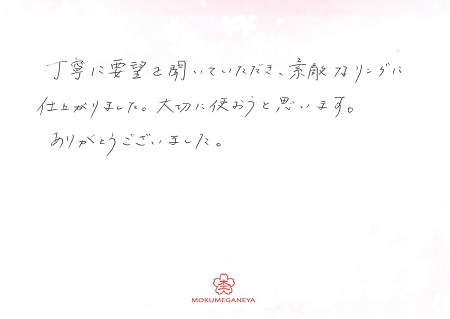 丁寧に要望を聞いていただき、素敵なリングに
仕上がりました。大切に使おうと思います。
ありがとうございました。
MOKUMEGANEYA